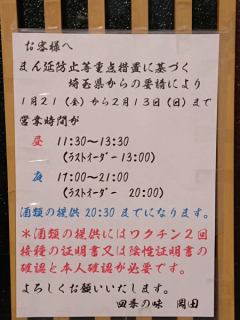 お客様へ
まん延防止等重点措置に基づく
埼玉県からの要請により
1月21(金)から2月13日(日)まで
営業時間が
昼 11:30~13:30
(ラストオーダー13:00)
夜 17:00~21:00
(ラストオーダー 20:00)
酒類の提供 20:30までになります。
*酒類の提供にはワクチン2回
接種の証明書又は陰性証明書の
確認と本人確認が必要です。
よろしくお願いいたします。
四季の味 岡田